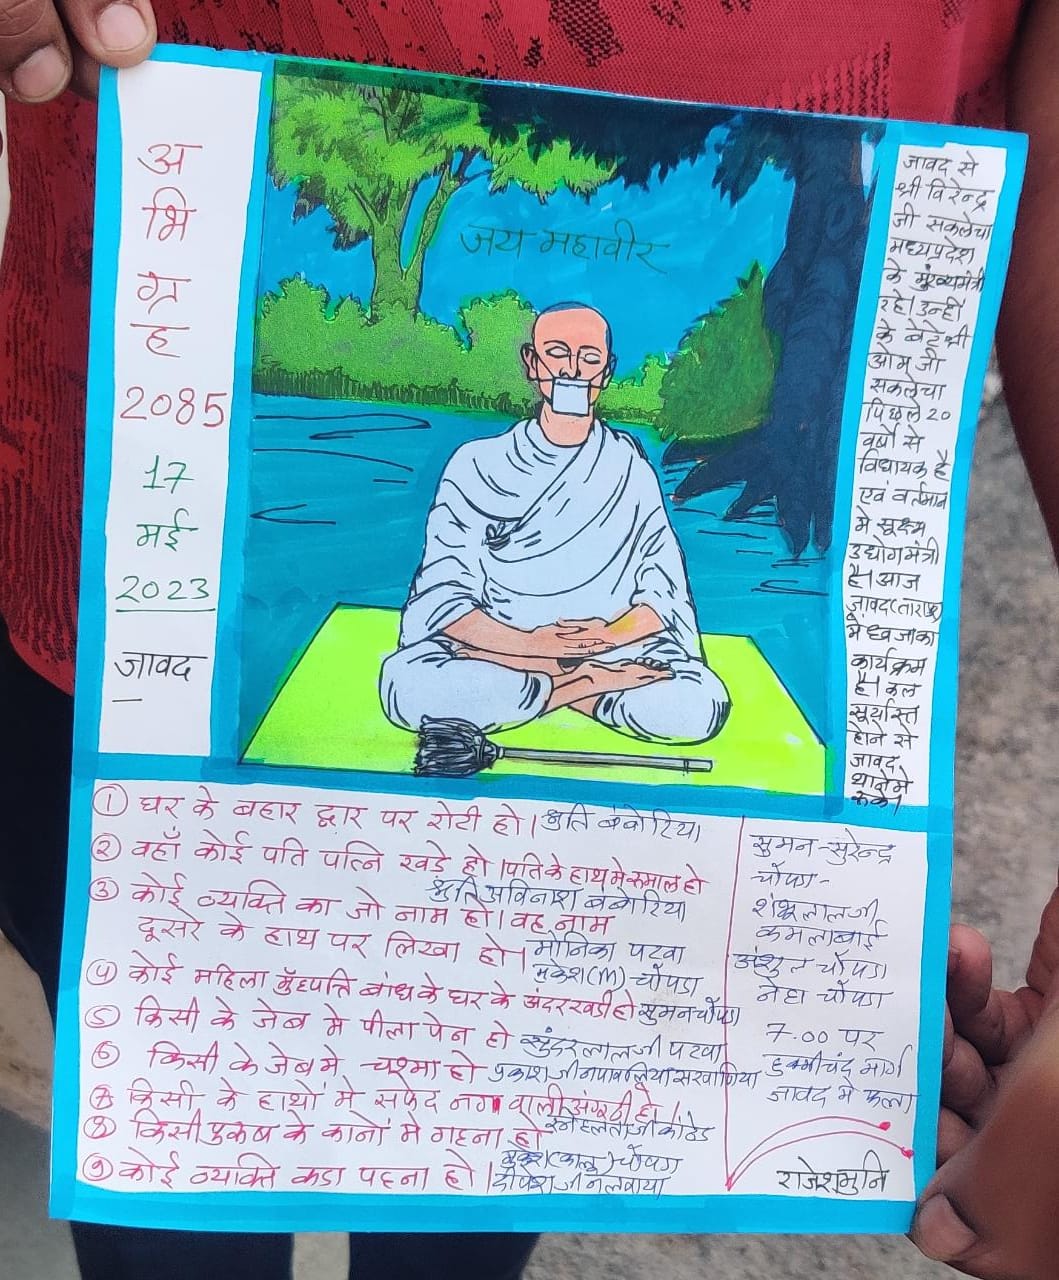 अ
भि
ग्र
ह
2085
17
मई
2023
जावद
जय महावीर
जावद से
श्री विरेन्द्र
जी सकलेचा
मध्यप्रदेश
के मुख्यमंत्री
रहे। उन्ही
के बेटे श्री
ओम जी
सकलेचा
पिछले 20
वर्षो से
विधायक है
एवं वर्तमान
मे सूक्ष्म
उद्योगमंत्री
है। आज
जावद
मे ध्वजा का
कार्यक्रम
है। कल
सूर्यास्त
होने से
जावद
थाने मे
रुके।
① घर के बहार द्वार पर रोटी हो। श्रुति बंबोरिया
② वहाँ कोई पति पत्नि खडे हो। पति के हाथ मे रुमाल हो
श्रुति अविनाश बंबोरिया
③ कोई व्यक्ति का जो नाम हो। वह नाम
दूसरे के हाथ पर लिखा हो। मोनिका पटवा
मुकेश (M) चोपडा
④ कोई महिला मुँहपत्ति बांध के घर के अंदर खडी हो सुमन चोपडा
⑤ किसी के जेब मे पीला पेन हो सुंदरलालजी पटवा
⑥ किसी के जेब मे चश्मा हो प्रकाश जी नपावलिया सरवाणिया
⑦ किसी के हाथों मे सफेद नग वाली अंगूठी हो।
स्नेहलताजी कांठेड
⑧ किसी पुरुष के कानों मे गहना हो
मुकेश (कालु) चोपडा
⑨ कोई व्यक्ति कडा पहना हो। दीपेश जी नलवाया
सुमन-सुरेन्द्र
चोपडा-
शंभूलालजी
कमलाबाई
अंशुल चोपडा
नेहा चोपडा
7.00 पर
हुक्मीचंद मार्ग
जावद मे फला
राजेशमुनि